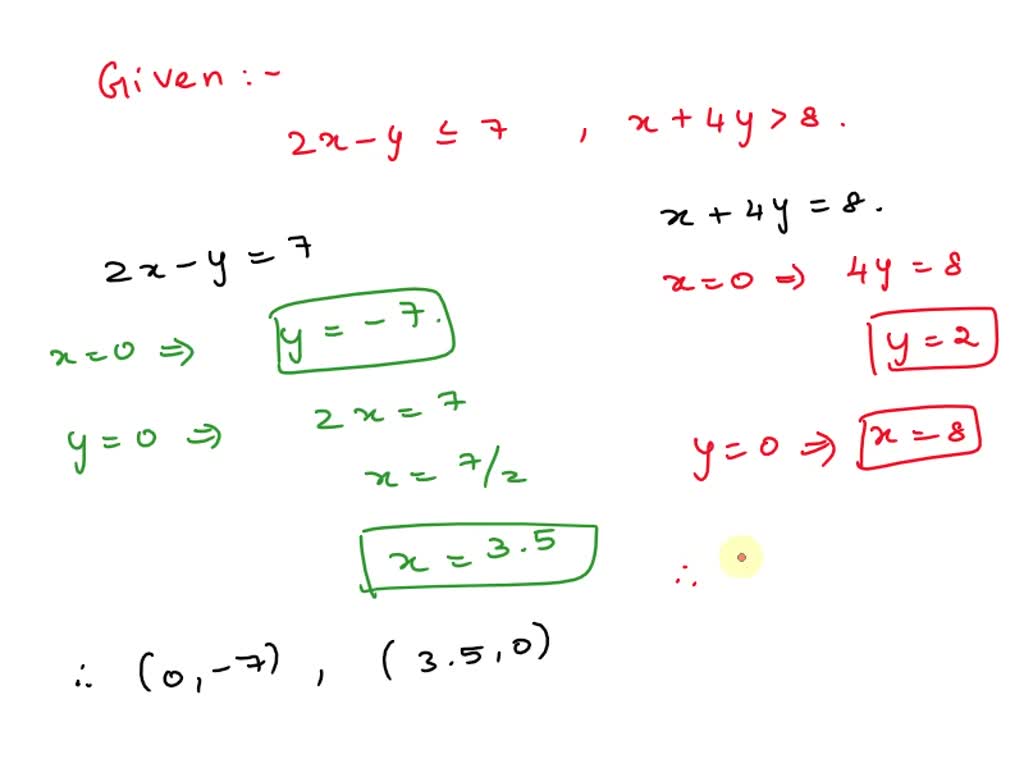 Given :-
2x - y ≤ 7 , x + 4y > 8 .
2x - y = 7
x = 0 ⇒ y = - 7.
y = 0 ⇒ 2x = 7
x = 7/2
x = 3.5
∴ (0, -7) , (3.5, 0)
x + 4y = 8.
x = 0 ⇒ 4y = 8
y = 2
y = 0 ⇒ x = 8
∴